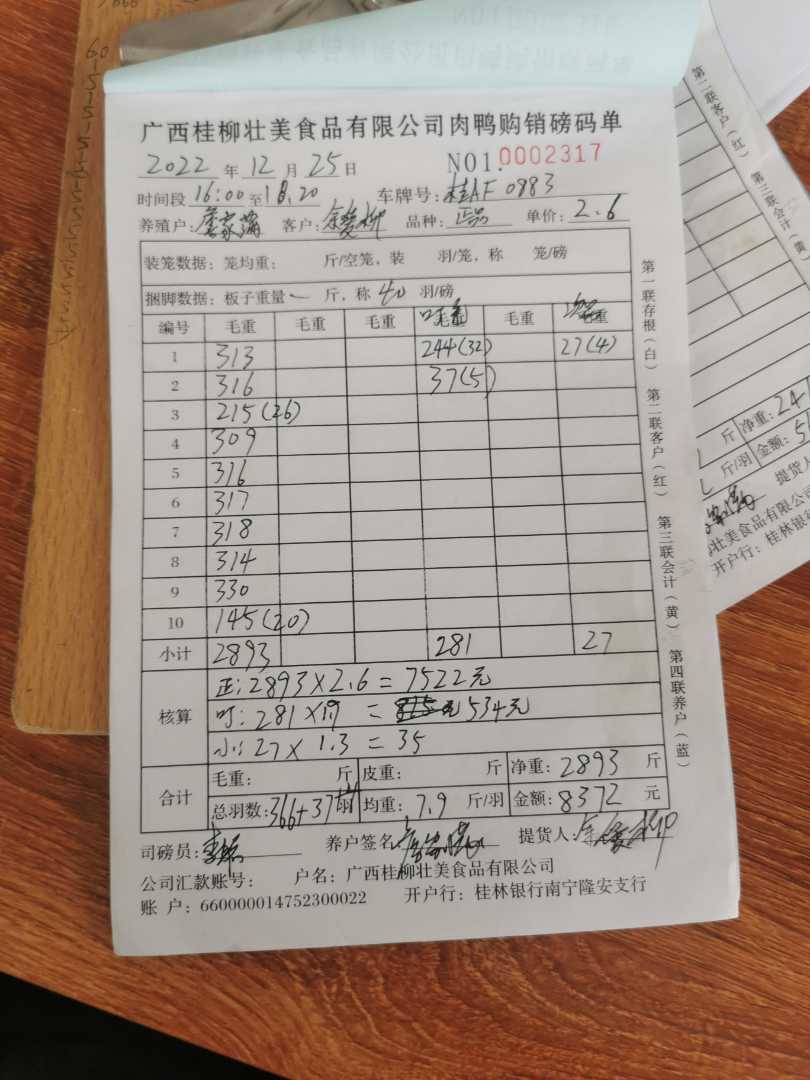 广西桂柳壮美食品有限公司肉鸭购销磅码单
2022 年 12 月 25 日 NO1. 0002317
时间段 16:00 至 18:20 车牌号: 桂AF 0883
养殖户: 客户: 品种: 正品 单价: 2.6
装笼数据: 笼均重: 斤/空笼, 装 羽/笼, 称 笼/磅
捆脚数据: 板子重量 斤, 称 40 羽/磅
编号 毛重 毛重 毛重 毛重 毛重 毛重
1 313 244(32) 27(4)
2 316 37(5)
3 215(26)
4 309
5 316
6 317
7 318
8 314
9 330
10 145(20)
小计 2893 281 27
核算
正: 2893×2.6 = 7522元
叮: 281×19 = 534元
小: 27×1.3 = 35
合计
毛重: 斤 皮重: 斤 净重: 2893 斤
总羽数: 366+37 羽 均重: 7.9 斤/羽 金额: 8372 元
司磅员: 养户签名 提货人:
公司汇款账号: 户名: 广西桂柳壮美食品有限公司
账 户: 660000014752300022 开户行: 桂林银行南宁隆安支行
第一联存根(白) 第二联客户(红) 第三联会计(黄) 第四联养户(蓝)
第二联客户(红) 第三联会计(黄)
斤 净重: 24
斤/羽 金额: 5
提货人
壮美食品有限公司
开户行: 桂林银